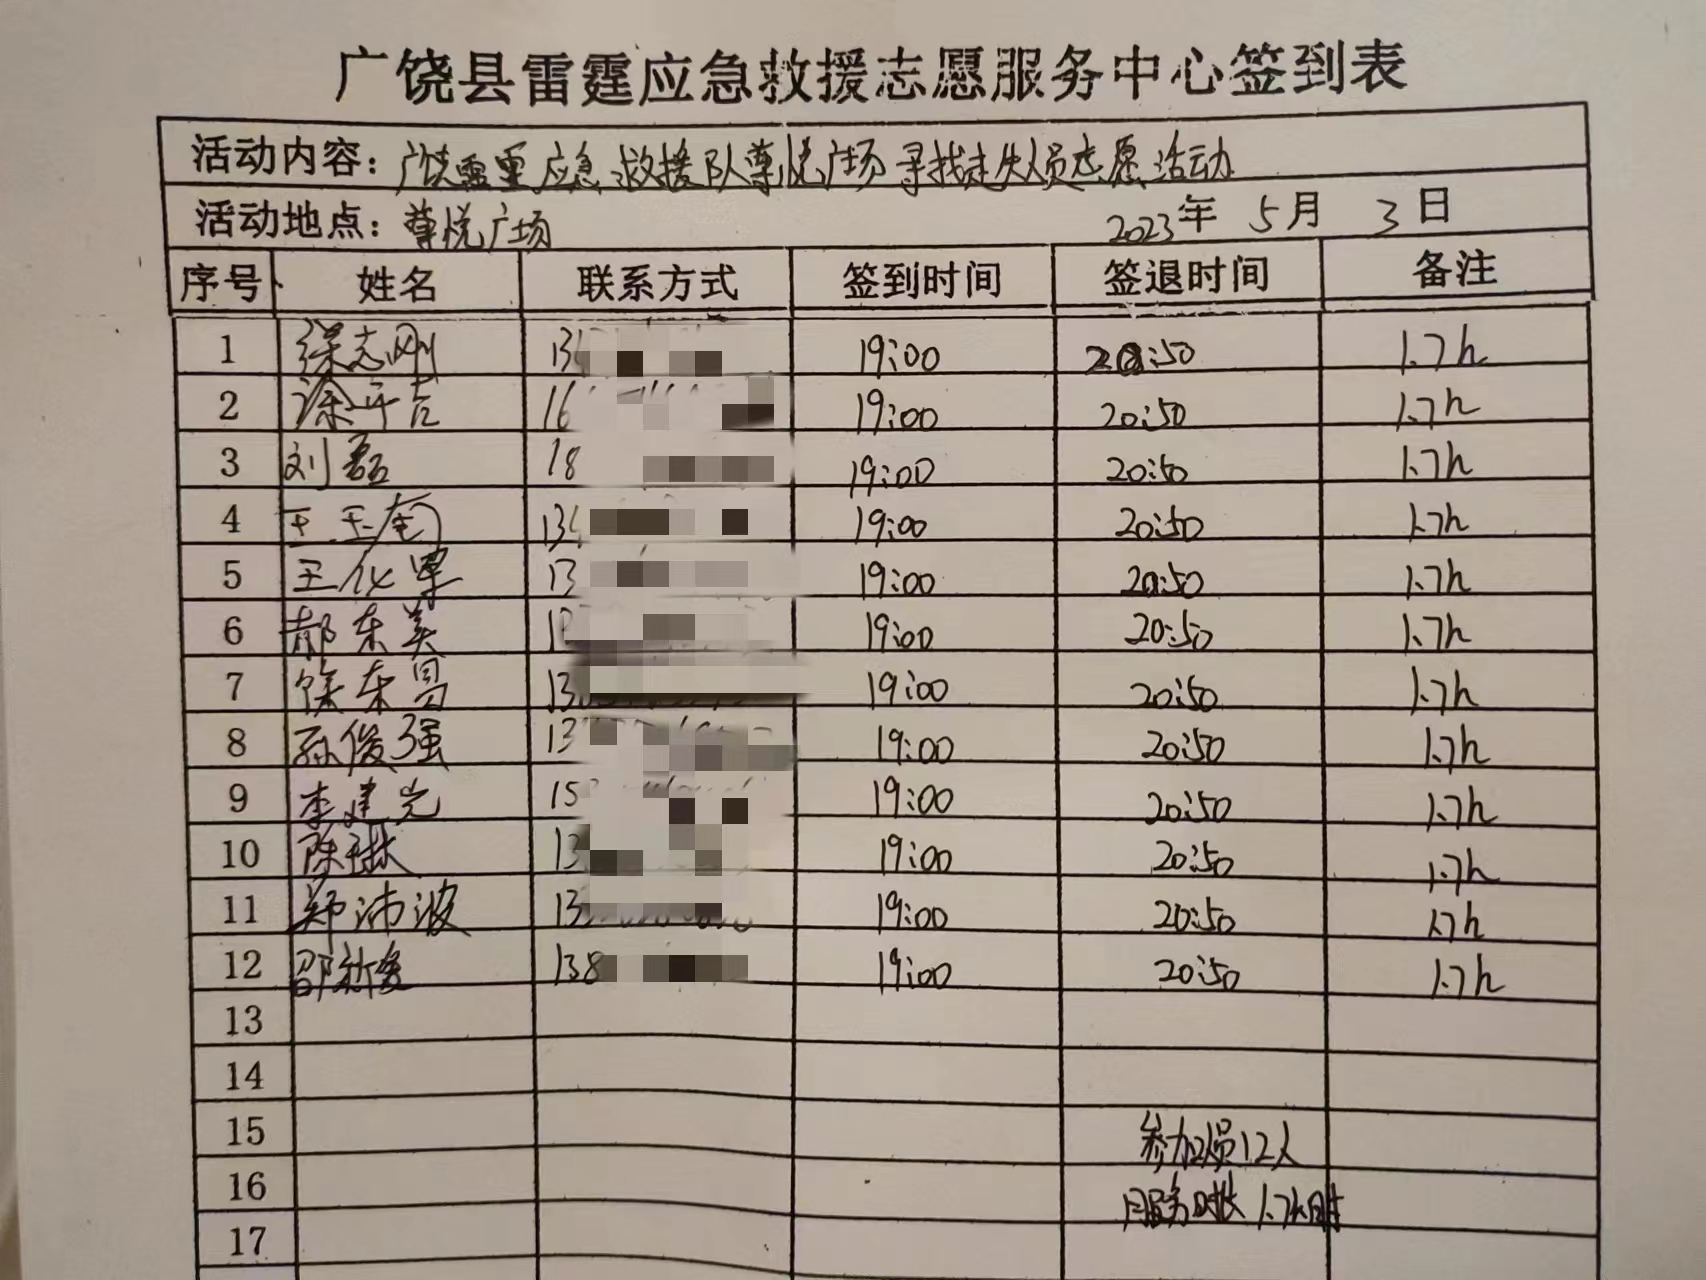 广饶县雷霆应急救援志愿服务中心签到表
活动内容：广饶雷霆应急救援队尊悦广场寻找走失人员志愿活动
活动地点：尊悦广场 2023年 5月 3日
序号 姓名 联系方式 签到时间 签退时间 备注
1 徐志刚 13 19:00 20:50 1.7h
2 徐平吉 16 19:00 20:50 1.7h
3 刘磊 18 19:00 20:50 1.7h
4 王玉 13 19:00 20:50 1.7h
5 王化军 13 19:00 20:50 1.7h
6 郝东美 19:00 20:50 1.7h
7 徐东昌 13 19:00 20:50 1.7h
8 孙俊强 13 19:00 20:50 1.7h
9 李建光 15 19:00 20:50 1.7h
10 陈琳 13 19:00 20:50 1.7h
11 郑沛波 13 19:00 20:50 1.7h
12 邵新 138 19:00 20:50 1.7h
13
14
15 参加队员12人
16 服务时长 1.7小时
17